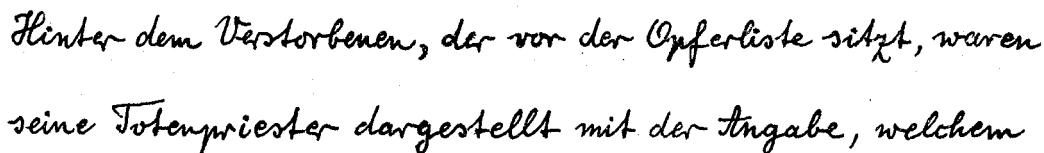 Hinter dem Verstorbenen, der vor der Opferliste sitzt, waren
seine Totenpriester dargestellt mit der Angabe, welchem